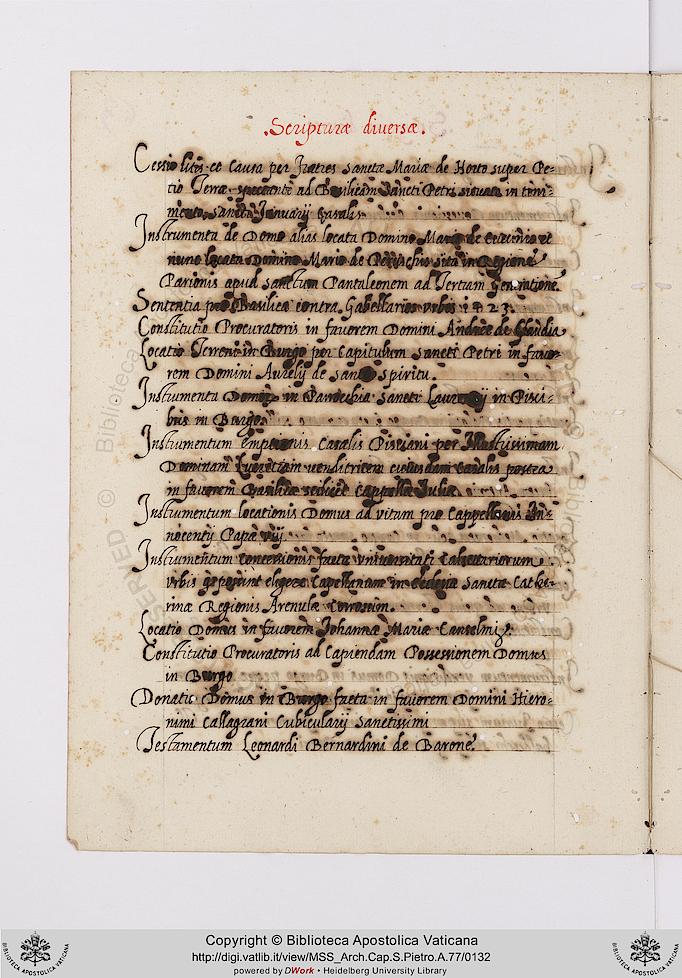 .Scripturæ diversæ.
Cessio litis et Causa per Fratres Sanctæ Mariæ de Horto super Pe=
tio Terræ spectante ad Basilicam Sancti Petri situata in teni=
mento Sancti Januarij Casalis
Instrumenta de Domo alias locata Domino Mario de et
nunc locata Domino Mario de sita in Regione
Parionis apud Sanctum Pantaleonem ad Tertiam Generatione.
Sententia pro Basilica contra Gabellarios Urbis 1423.
Constitutio Procuratoris in favorem Domini Andreæ de Claudia
Locatio Terreni in Burgo per Capitulum Sancti Petri in favo=
rem Domini Aurelij de Sancto Spiritu.
Instrumenta Domus in Parrochia Sancti Laurentij in Pisci=
bus in Burgo.
Instrumentum emptionis Casalis Pisciani per Illustrissimam
Dominam Lucretiam venditricem eiusdam Casalis
in favorem Basilicæ scilicet Cappellæ Juliæ
Instrumentum locationis Domus ad vitam pro Cappellanis In=
nocentij Papæ viij.
Instrumentum concessionis facta Universitati Calsettariorum
Urbis possint eligere Capellanum in Sanctæ Cathe=
rinæ Regionis Arenulæ
Locatio Domus in favorem Johannæ Mariæ
Constitutio Procuratoris ad Capiendam Possessionem Domus
in Burgo
Donatio Domus in Burgo facta in favorem Domini Hiero=
nimi Callagrani Cubicularij Sanctissimi
Testamentum Leonardi Bernardini de Barone.
Copyright © Biblioteca Apostolica Vaticana
http://digi.vatlib.it/view/MSS_Arch.Cap.S.Pietro.A.77/0132
powered by DWork • Heidelberg University Library